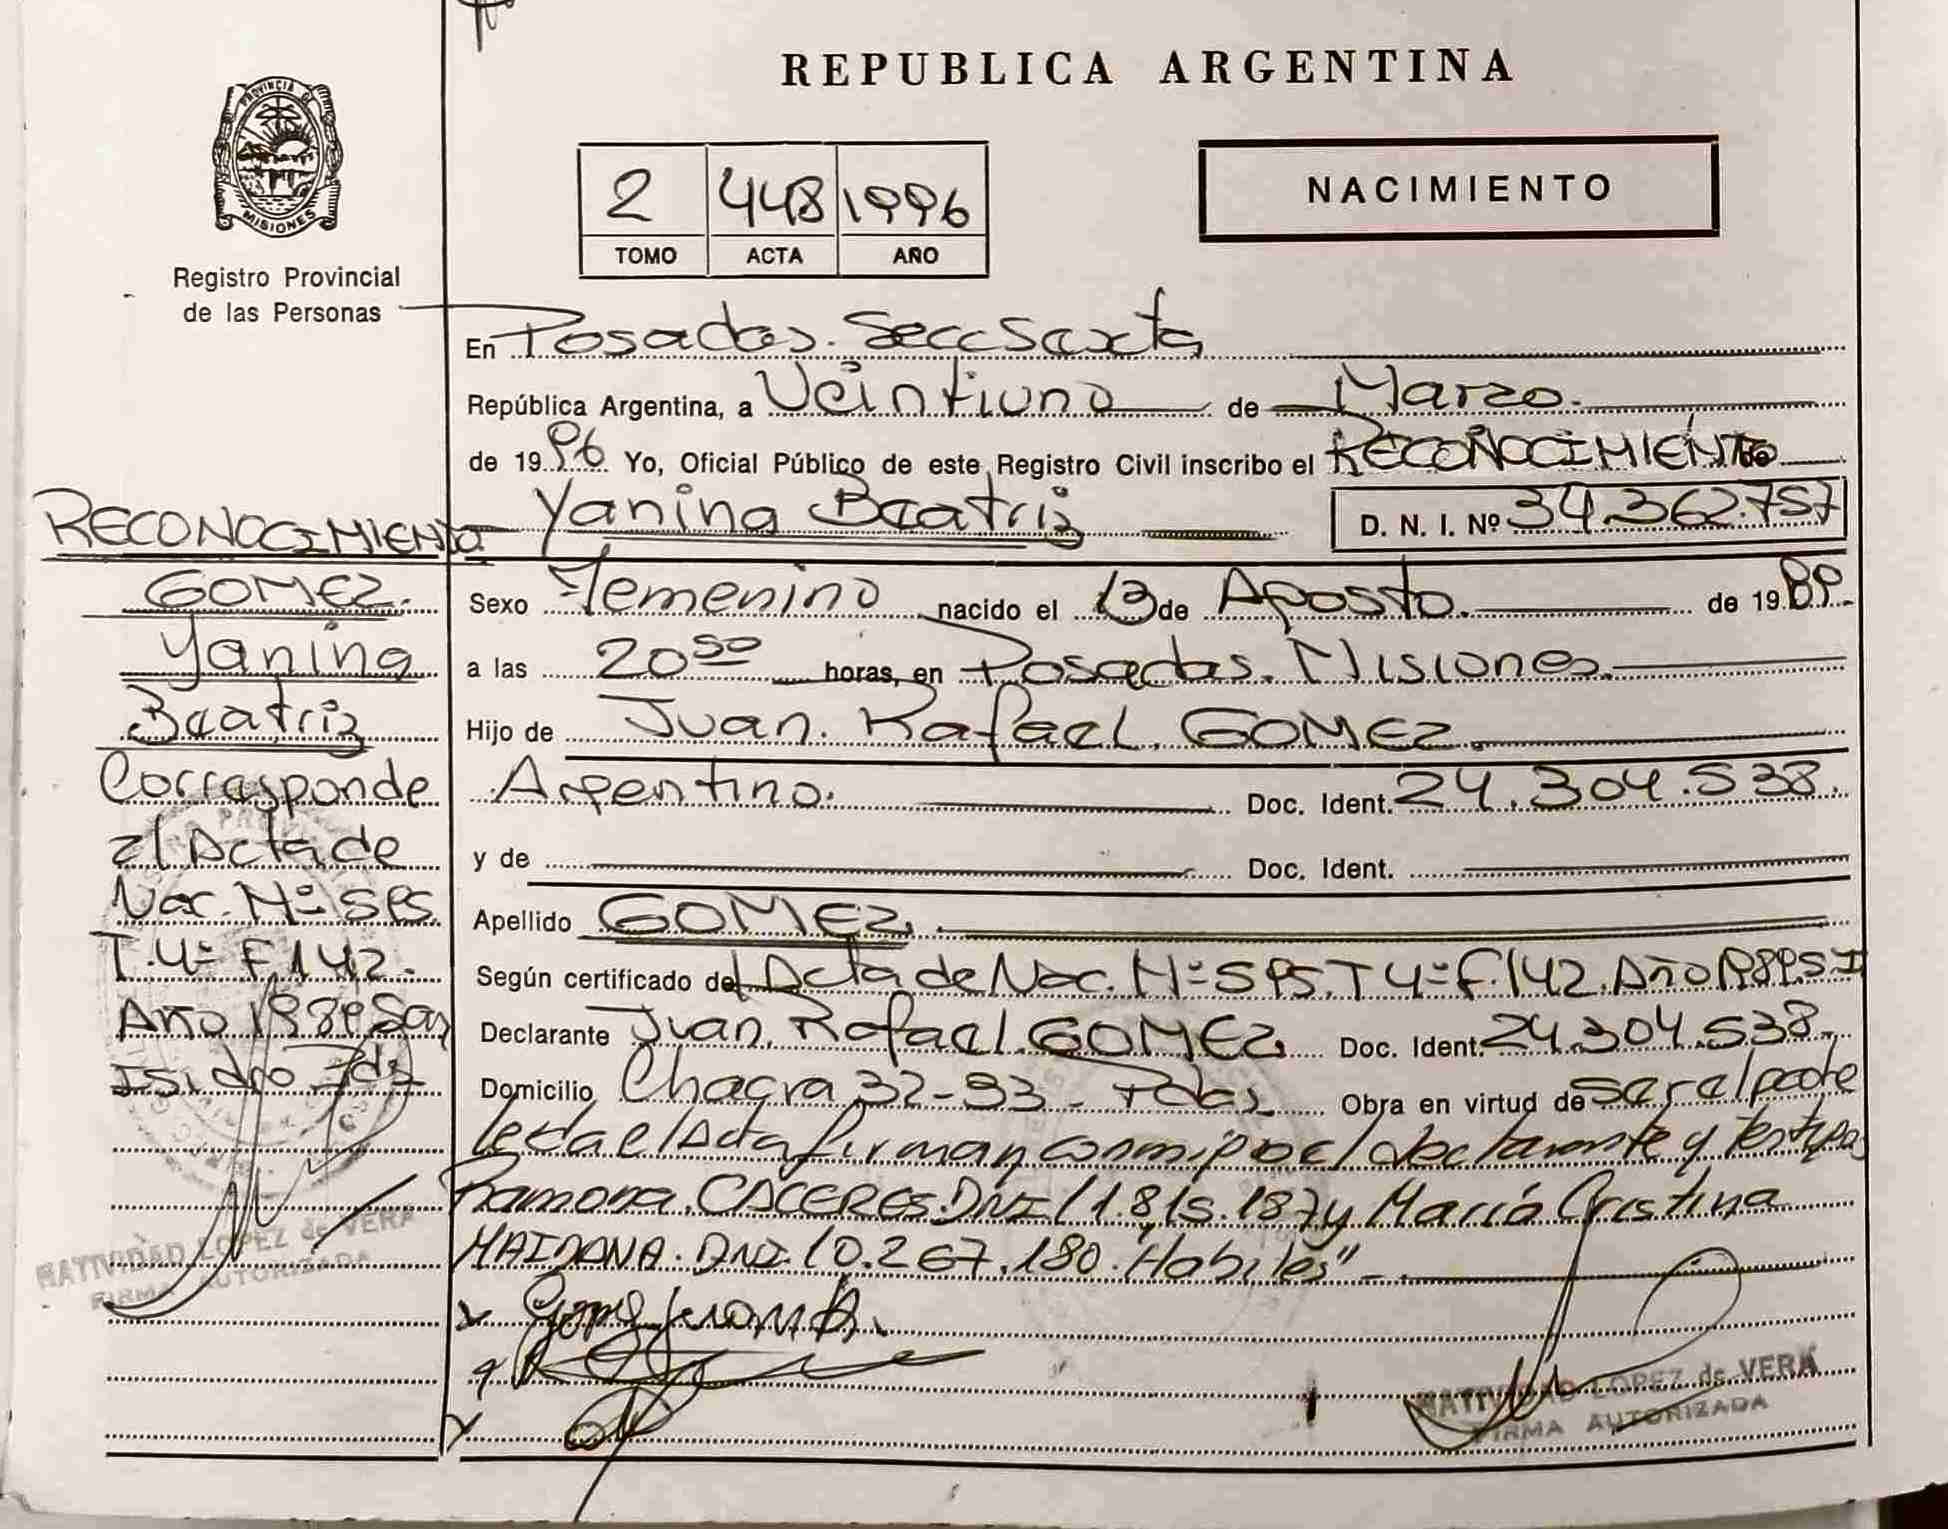 REPUBLICA ARGENTINA
PROVINCIA DE
MISIONES
Registro Provincial
de las Personas
2 448 1996
TOMO ACTA AÑO
NACIMIENTO
En Posadas. Secc Sexta
República Argentina, a Veintiuno de Marzo.
de 1996 Yo, Oficial Público de este Registro Civil inscribo el RECONOCIMIENTO
Yanina Beatriz D. N. I. Nº 34.362.757
Sexo Femenino nacido el 13 de Agosto. de 1989.
a las 20 50 horas, en Posadas. Misiones.
Hijo de Juan. Rafael. GOMEZ.
Argentino. Doc. Ident. 24.304.538.
y de Doc. Ident.
Apellido GOMEZ.
Según certificado del Acta de Nac. Nº 595. T 4º F. 142. Año 1989. S I
Declarante Juan. Rafael. GOMEZ. Doc. Ident. 24.304.538.
Domicilio Chacra 32-33 - Pdas. Obra en virtud de ser el padre
leida el Acta firman conmigo el declarante y Testigos
Ramona. CACERES. DNI 11.815.187 y María Cristina
MAIDANA. DNI. 10.267.180. Habiles"
NATIVIDAD LOPEZ de VERA
FIRMA AUTORIZADA
RECONOCIMIENTO
GOMEZ.
Yanina
Beatriz
Corresponde
al Acta de
Nac. Nº 595.
T. 4º F. 142.
Año 1989 San
Isidro Pds
NATIVIDAD LOPEZ de VERA
FIRMA AUTORIZADA